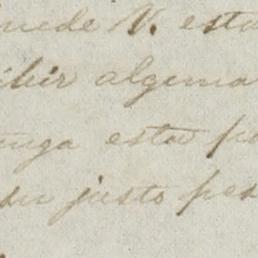 puede V. esta
ibir alguna
nga esta pe
su justo pes